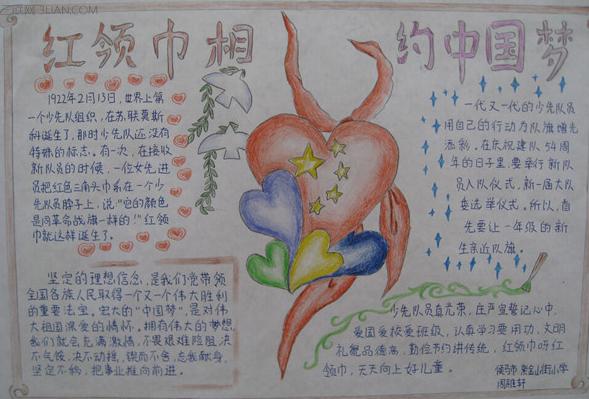 JLIAN.COM
红领巾相约中国梦
1922年2月13日,世界上第
一个少先队组织,在苏联莫斯
科诞生了,那时少先队还没有
特殊的标志。有一次,在接收
新队员的时候,一位女先进
员把红色三角头巾系在一个少
先队员脖子上,说:“它的颜色
是同革命战旗一样的!”红领
巾就这样诞生了。
一代又一代的少先队员
用自己的行动为队旗增光
添彩,在庆祝建队54周
年的日子里,要举行新队
员入队仪式,新一届大队
委选举仪式。所以,首
先要让一年级的新
生亲近队旗。
坚定的理想信念,是我们党带领
全国各族人民取得一个又一个伟大胜利
的重要法宝。宏大的“中国梦”,是对伟
大祖国深爱的情怀。拥有伟大的梦想
我们就会充满激情,不畏艰难险阻,决
不气馁,决不动摇,锲而不舍,忘我献身,
坚定不移,把事业推向前进。
少先队员真光荣,庄严宣誓记心中,
爱国爱校爱班级,认真学习要用功,文明
礼貌品德高,勤俭节约讲传统,红领巾呀红
领巾,天天向上好儿童。
侯马市紫金山街小学
周雅轩